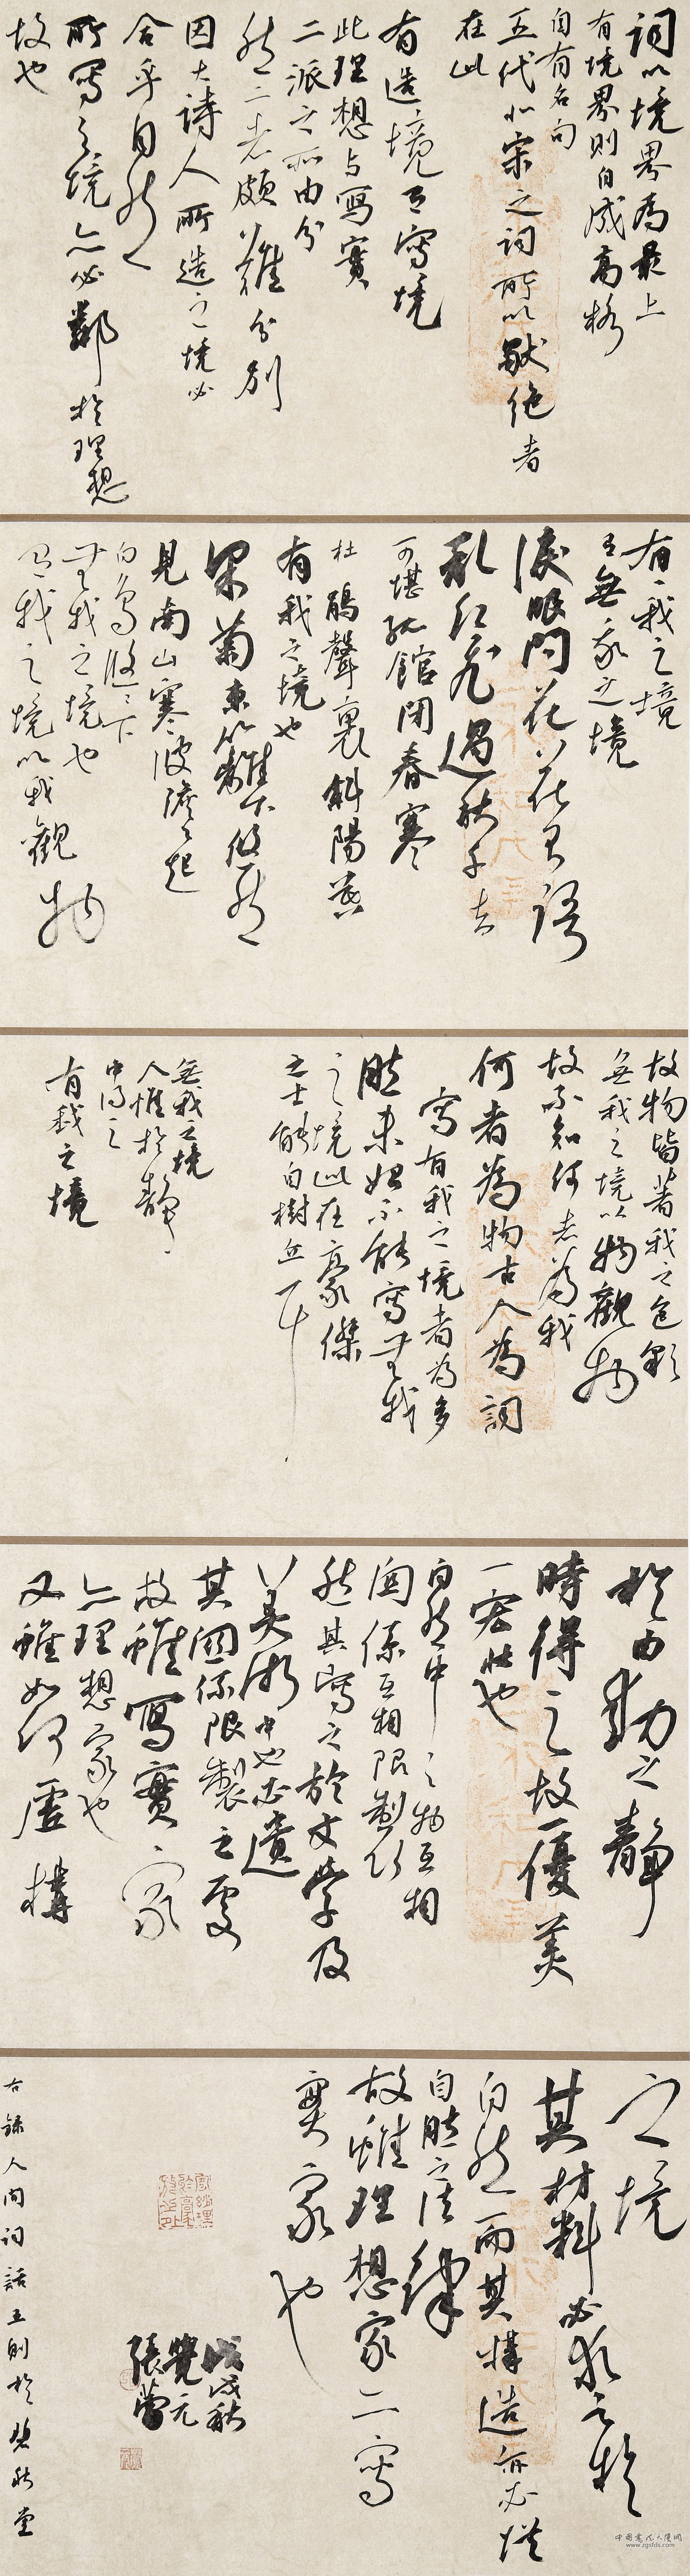 词以境界為最上
有境界則自成高格
自有名句
五代北宋之词所以獨絶者
在此
有造境有寫境
此理想与寫實
二派之所由分
然二者颇難分别
因大詩人所造之境必
合乎自然
所寫之境亦必鄰於理想
故也
有有我之境
有無我之境
淚眼問花花不語
亂红飛過秋千去
可堪孤館閉春寒
杜鵑聲裏斜陽暮
有我之境也
采菊東篱下悠然
見南山寒波澹澹起
白鳥悠悠下
無我之境也
有我之境以我觀物
故物皆著我之色彩
無我之境以物觀物
故不知何者為我
何者為物古人為詞
寫有我之境者為多
然未始不能寫無我
之境此在豪傑
之士能自樹立耳
無我之境
人惟於静
中得之
有我之境
於由動之静
時得之故一優美
一宏壯也
自然中之物互相
関係互相限制然
然其寫之於文学及
美術中也必遺
其関係限製之處
故雖寫實家
亦理想家也
又雖如何虚構
之境
其材料必求之於
自然而其構造亦必從
自然之法律
故雖理想家亦寫
實家也
戊戌秋
覺元
張蕾
右録人间词話五則於碧秋堂
中国书法大厦网
www.zgsfds.com